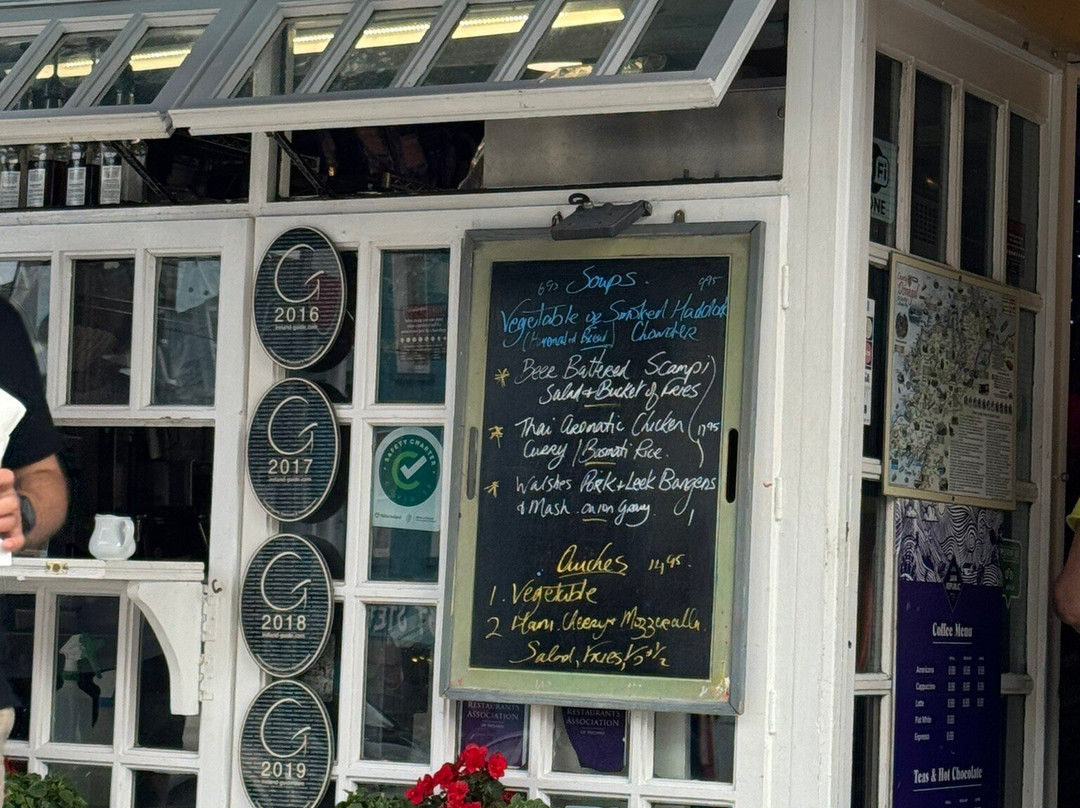 G
2016
ireland-guide.com
G
2017
ireland-guide.com
G
2018
ireland-guide.com
G
2019
SAFETY CHARTER
6.95 Soups. 9.95
Vegetable or Smoked Haddock
Chowder
* Beer Battered Scampi
Salad + Bucket of Fries
* Thai Aromatic Chicken 17.95
Curry / Basmati Rice.
* Walshes Pork + Leek Bangers
& Mash onion Gravy
Quiches 14.95.
1. Vegetable
2 Ham. Cheery + Mozzerella.
Salad, Fries, 1/2 & 1/2
RESTAURANTS
ASSOCIATION
RESTAURANTS
ASSOCIATION
Fi
ONE
JAVA
REPUBLIC
Coffee Menu
Americano
Cappuccino
Latte
Flat White
Espresso
Teas & Hot Chocolate